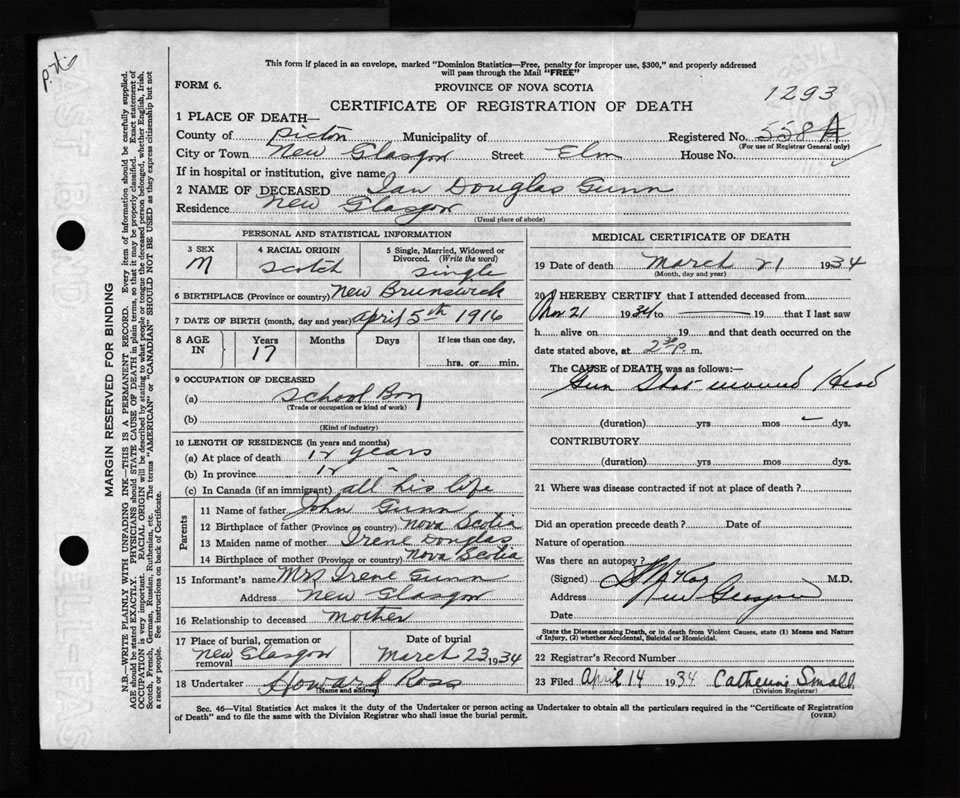 This form if placed in an envelope, marked "Dominion Statistics—Free, penalty for improper use, $300," and properly addressed
will pass through the Mail "FREE"
FORM 6.
PROVINCE OF NOVA SCOTIA
1293
CERTIFICATE OF REGISTRATION OF DEATH
1 PLACE OF DEATH—
County of Pictou Municipality of Registered No. 558 A
(For use of Registrar General only)
City or Town New Glasgow Street Elm House No.
If in hospital or institution, give name
2 NAME OF DECEASED Ian Douglas Gunn
Residence New Glasgow
(Usual place of abode)
PERSONAL AND STATISTICAL INFORMATION
3 SEX
M
4 RACIAL ORIGIN
Scotch
5 Single, Married, Widowed or
Divorced. (Write the word)
single
6 BIRTHPLACE (Province or country) New Brunswick
7 DATE OF BIRTH (month, day and year) April 5th 1916
8 AGE IN
Years Months Days If less than one day,
17
hrs. or min.
9 OCCUPATION OF DECEASED
(a) School Boy
(Trade or occupation or kind of work)
(b)
(Kind of industry)
10 LENGTH OF RESIDENCE (in years and months)
(a) At place of death 12 years
(b) In province 12 "
(c) In Canada (if an immigrant) all his life
Parents
11 Name of father John Gunn
12 Birthplace of father (Province or country) Nova Scotia
13 Maiden name of mother Irene Douglas
14 Birthplace of mother (Province or country) Nova Scotia
15 Informant's name Mrs Irene Gunn
Address New Glasgow
16 Relationship to deceased mother
17 Place of burial, cremation or
removal New Glasgow
Date of burial
March 23, 1934
18 Undertaker Howard Ross
(Name and address)
MEDICAL CERTIFICATE OF DEATH
19 Date of death March 21 1934
(Month, day and year)
20 I HEREBY CERTIFY that I attended deceased from
Mar 21 1934 to 19 that I last saw
h alive on 19 and that death occurred on
date stated above, at 2 30 p. m.
The CAUSE of DEATH was as follows:—
Gun Shot wound Head
(duration) yrs mos dys.
CONTRIBUTORY
(duration) yrs. mos. dys.
21 Where was disease contracted if not at place of death?
Did an operation precede death? Date of
Nature of operation
Was there an autopsy?
(Signed) M.D.
Address New Glasgow
Date
State the Disease causing Death, or in death from Violent Causes, state (1) Means and Nature
of Injury, (2) whether Accidental, Suicidal or Homicidal.
22 Registrar's Record Number
23 Filed April 14 1934 Catherine Small
(Division Registrar)
Sec. 46—Vital Statistics Act makes it the duty of the Undertaker or person acting as Undertaker to obtain all the particulars required in the "Certificate of Registration
of Death" and to file the same with the Division Registrar who shall issue the burial permit.
(OVER)
MARGIN RESERVED FOR BINDING
N.B.—WRITE PLAINLY WITH UNFADING INK—THIS IS A PERMANENT RECORD. Every item of information should be carefully supplied.
AGE should be stated EXACTLY. PHYSICIANS should STATE CAUSE OF DEATH in plain terms, so that it may be properly classified. Exact statement of
OCCUPATION is very important. RACIAL ORIGIN will be described by stating to what people or tongue the deceased person belonged, whether English, Irish,
Scotch, French, German, Russian, Ruthenian, etc. The terms "AMERICAN" or "CANADIAN" SHOULD NOT BE USED as they express citizenship but not
a race or people. See instructions on back of Certificate.